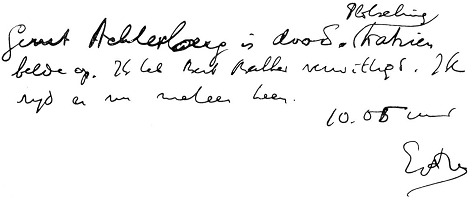 Plotseling
Gerrit Achterberg is dood. Katrien
belde op. Ik heb Bert Bakker verwittigd. Ik
rijd er nu meteen heen.
10.05 uur